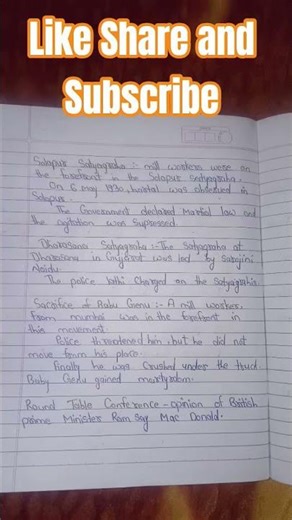 Like Share and
Subscribe
Solapur Satyagraha :- mill workers were on
the forefront in the Solapur Satyagraha.
On 6 may 1930, hartal was observed in
Solapur.
The Government declared Martial law and
the agitation was supressed.
Dharasana Satyagraha :- The satyagraha at
Dharasana in Gujarat was led by Sarojini
Naidu.
The police lathi charged on the satyagrahis.
Sacrifice of Babu Genu :- A mill worker
from mumbai was in the forefront in
this movement.
Police threatened him, but he did not
move from his place.
Finally he was crushed under the truck
Baby Genu gained martyrdom.
Round Table Conference - opinion of British
prime Minister Ram Say Mac Donald.